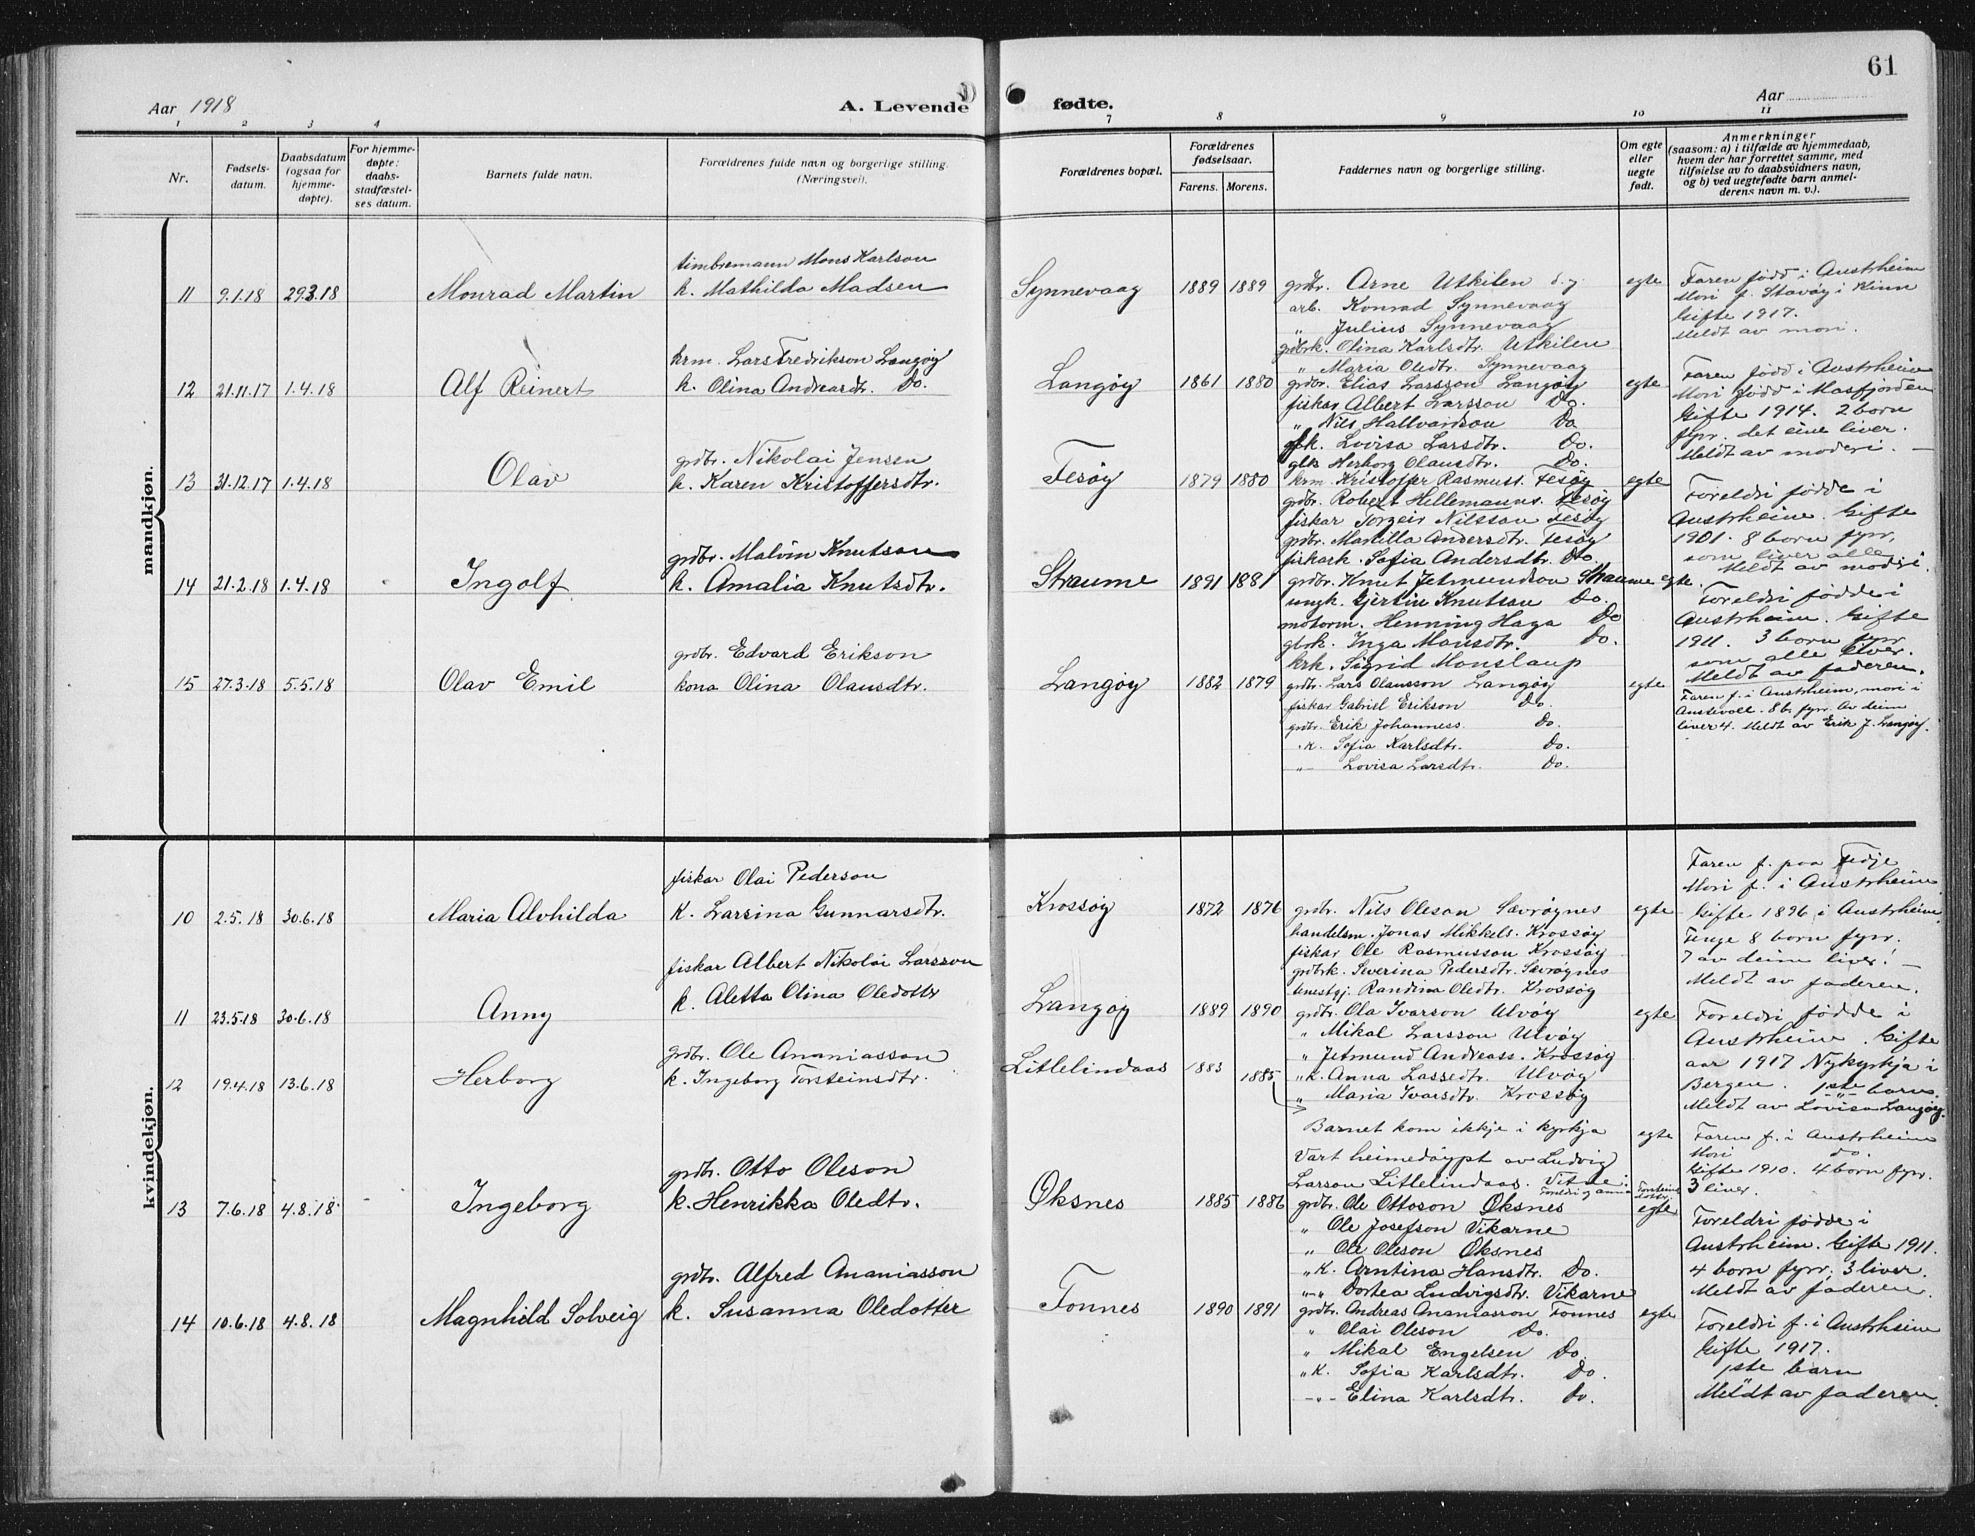 61
Aar 1918
A. Levende fødte.
Aar
1 2 3 4 7 8 9 10 11
Nr.
Fødsels-
datum.
Daabsdatum
(ogsaa for
hjemme-
døpte).
For hjemme-
døpte:
daabs-
stadfæstel-
ses datum.
Barnets fulde navn.
Forældrenes fulde navn og borgerlige stilling.
(Næringsvei).
Forældrenes bopæl.
Forældrenes
fødselsaar.
Farens. Morens.
Faddernes navn og borgerlige stilling.
Om egte
eller
uegte
født.
Anmerkninger
(saasom: a) i tilfælde av hjemmedaab,
hvem der har forrettet samme, med
tilføielse av to daabsvidners navn,
og b) ved uegtefødte barn anmel-
derens navn m. v.).
mandkjøn.
11 9.1.18 29.3.18 Monrad Martin
timbremann Mons Karlson
k. Mathilda Madsen
Synnevaag 1889 1889
grdbr. Arne Utkilen d.y.
arb. Konrad Synnevaag
" Julius Synnevaag
grdbrk. Olina Karlsdtr. Utkilen
" Maria Oledtr. Synnevaag
egte
Faren fødd i Austrheim
Mori f. Stavøy i Kinn
Gifte 1917.
Meldt av mori.
12 21.11.17 1.4.18 Alf Reinert
krm. Lars Fredrikson Langøy
k. Olina Andreasdtr. Do.
Langøy 1861 1880
grdbr. Elias Larsson Langøy
fiskar Albert Larsson Do.
" Nils Hallvardson Do
gbk. Lovisa Larsdtr. Do.
gbk Herborg Olausdtr. Do.
egte
Faren fødd i Austrheim
Mori fødd i Masfjorden
Gifte 1914. 2 born
fyrr. det eine liver.
Meldt av moderi.
13 31.12.17 1.4.18 Olav
grdbr. Nikolai Jensen
k. Karen Kristoffersdtr.
Fesøy 1879 1880
krm. Kristoffer Rasmuss. Fesøy
grdbr. Robert Hellemanns. Fesøy
fiskar Torgeir Nilsson Fesøy
grdbr. Marilla Andersdtr. Fesøy
fiskark. Sofia Andersdtr. Do
egte
Foreldri fødde i
Austrheim. Gifte
1901. 8 born fyrr,
som liver alle
Meldt av moderi.
14 21.2.18 1.4.18 Ingolf
grdbr. Malvin Knutson
k. Amalia Knutsdtr.
Straume 1891 1881
grdbr. Knut Jetmundson Straume
ungk. Gjertin Knutson Do.
motorm. Henning Haga Do
gbrk. Inga Monsdtr. Do.
krk. Sigrid Monslaup
egte.
Foreldri fødde i
Austrheim. Gifte
1911. 3 born fyrr
som alle liver.
Meldt av faderen.
15 27.3.18 5.5.18 Olav Emil
grdbr. Edvard Erikson
kona Olina Olausdtr.
Langøy 1882 1879
grdbr. Lars Olausson Langøy
fiskar Gabriel Erikson Do.
grdbr. Erik Johanness Do.
" k. Sofia Karlsdtr. Do.
" Lovisa Larsdtr. Do.
egte
Faren f. i Austrheim, mori i
Austevoll. 8 b. fyrr. Av deim
liver 4. Meldt av Erik J. Langøy.
kvindekjøn.
10 2.5.18 30.6.18 Maria Alvhilda
fiskar Olai Pederson
k. Larsina Gunnarsdtr.
Krossøy 1872 1876
grdbr. Nils Oleson Sævrøynes
handelsm. Jonas Mikkels. Krossøy
fiskar Ole Rasmusson Krossøy
grdbrk. Severina Pedersdtr. Sævrøynes
tenestgj. Randina Oledtr. Krossøy
egte
Faren f. paa Fedje
Mori f. i Austrheim
Gifte 1896 i Austrheim.
Tenge 8 born fyrr.
7 av deim liver.
Meldt av faderen.
11 23.5.18 30.6.18 Anny
fiskar Albert Nikolai Larsson
k. Aletta Olina Oledottr
Langøy 1889 1890
grdbr. Ola Ivarson Ulvøy
" Mikal Larsson Ulvøy
" Jetmund Andreass. Krossøy
" k. Anna Lassedtr. Ulvøy
" Maria Ivarsdtr. Krossøy
egte
Foreldri fødde i
Austrheim. Gifte
aar 1917 Nykyrkja i
Bergen. 1ste barn
Meldt av Lovisa Langøy.
12 19.4.18 13.6.18 Herborg
grdbr. Ole Ananiasson
k. Ingeborg Torsteinsdtr.
Litlelindaas 1883 1885
Barnet kom ikkje i kyrkja
Vart heimedøypt av Ludvig
Larson Litlelindaas. Vitne:
Foreldri og Anna Torsteins-
dottr.
egte
Faren f. i Austrheim
Mori do.
Gifte 1910. 4 born fyrr.
3 liver.
13 7.6.18 4.8.18 Ingeborg
grdbr. Otto Oleson
k. Henrikka Oledtr.
Øksnes 1885 1886
grdbr. Ole Ottoson Øksnes
" Ole Josefson Vikarne
" Ole Oleson Øksnes
" k. Arntina Hansdtr. Do.
" " Dortea Ludvigsdtr. Vikarne
egte
Foreldri fødde i
Austrheim. Gifte 1911.
4 born fyrr, 3 liver.
Meldt av faderen.
14 10.6.18 4.8.18 Magnhild Solveig
grdbr. Alfred Ananiasson
k. Susanna Oledotter
Fonnes 1890 1891
grdbr. Andreas Ananiasson Fonnes
" Olai Oleson Do.
" Mikal Engelsen Do.
" k. Sofia Karlsdtr. Do.
" Elina Karlsdtr. Do.
egte
Foreldri f. i Austrheim
Gifte 1917.
1ste barn
Meldt av faderen.